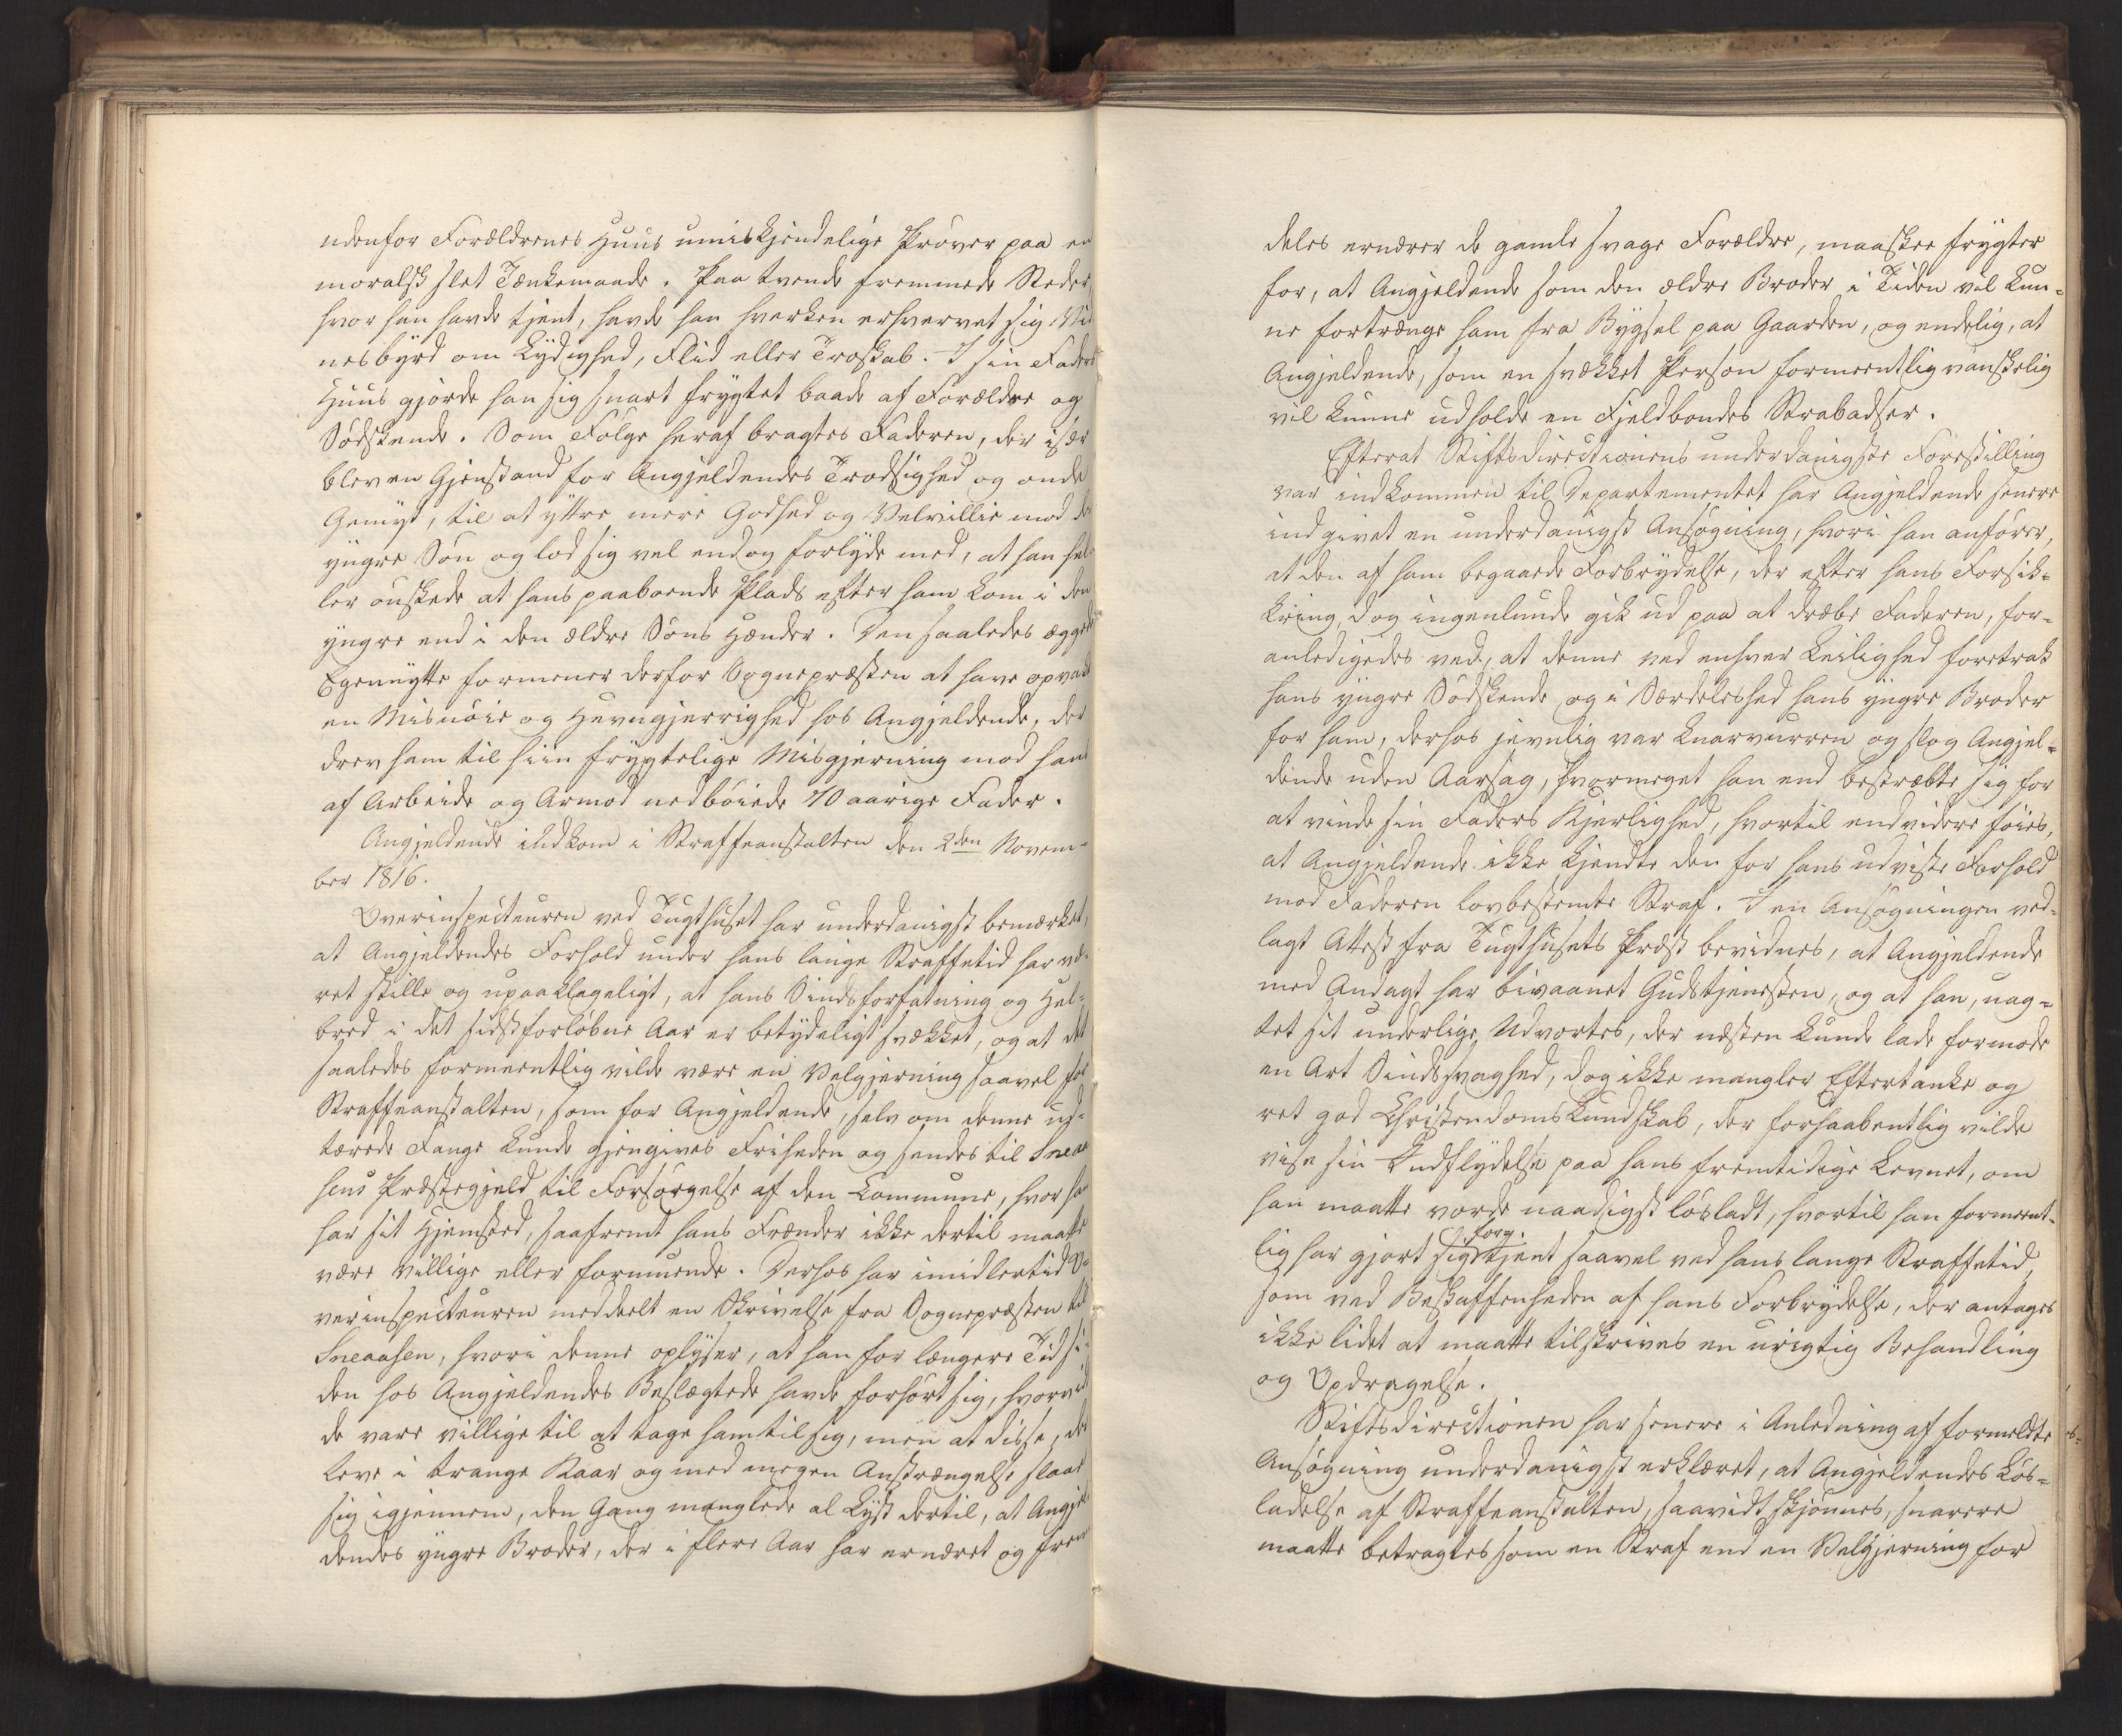 udenfor Forældrenes Huus umiskjendelige Prøver paa en
moralsk slet Tænkemaade. Paa tvende fremmede Steder,
hvor han havde tjent, havde han hverken erhvervet sig Vid
nesbyrd om Lydighed, Flid eller Troskab. I sin Faders
Huus gjorde han sig snart frygtet baade af Forældre og
Sødskende. Som Følge heraf bragtes Faderen, der især
blev en Gjenstand for Angjeldendes Trodsighed og onde
Gemyt, til at yttre mere Godhed og Velvillie mod den
yngre Søn og lod sig vel endog forlyde med, at han hel
ler ønskede at hans paaboende Plads efter ham kom i den
yngre end i den ældre Søns Hænder. Den saaledes æggede
Egennytte formener derfor Sognepræsten at have opvakt
en Misnøie og Hevngjerrighed hos Angjeldende, der
drev ham til hiin frygtelige Misgjerning mod hans
af Arbeide og Armod nedbøiede 70 aarige Fader.
Angjeldende indkom i Straffeanstalten den 2den Novem-
ber 1816.
Overinspecteuren ved Tugthuset har underdanigst bemærket,
at Angjeldendes Forhold under hans lange Straffetid har væ-
ret stille og upaaklageligt, at hans Sindsforfatning og Hel-
bred i det sidstforløbne Aar er betydeligt svækket, og at det
saaledes formeentlig vilde være en Velgjerning saavel for
Straffeanstalten, som for Angjeldende, selv om denne ud-
tærede Fange kunde gjengives Friheden og sendes til Sneaa
sens Præstegjeld til Forsørgelse af den Commune, hvor han
har sit Hjemsted, saafremt hans Frænder ikke dertil maatte
være villige eller formuende. Derhos har imidlertid O-
verinspecteuren meddeelt en Skrivelse fra Sognepræsten til
Sneaasen, hvori denne oplyser, at han for længere Tid si-
den hos Angjeldendes Beslægtede havde forhørt sig, hvorvidt
de vare villige til at tage ham til sig, men at disse, der
leve i trange Kaar og med megen Anstrængelse slaae
sig igjennem, den Gang manglede al Lyst dertil, at Angjel
dendes yngre Broder, der i flere Aar har ernæret og frem
deles ernærer de gamle svage Forældre, maaskee frygter
for, at Angjeldende som den ældre Broder i Tiden vil kun-
ne fortrænge ham fra Bygsel paa Gaarden, og endelig, at
Angjeldende, som en svækket Person formeentlig vanskelig
vil kunne udholde en Fjeldbondes Strabadser.
Efterat Stiftsdirectionens underdanigste Forestilling
var indkommen til Departementet har Angjeldende senere
indgivet en underdanigst Ansøgning, hvori han anfører,
at den af ham begaaede Forbrydelse, der efter hans Forsik-
kring, dog ingenlunde gik ud paa at dræbe Faderen, for-
anledigedes ved, at denne ved enhver Leilighed foretrak
hans yngre Sødskende og i Særdeleshed hans yngre Broder
for ham, derhos jevnlig var knarvurren og slog Angjel-
dende uden Aarsag, hvormeget han end bestræbte sig for
at vinde sin Faders Kjerlighed, hvortil endvidere føies,
at Angjeldende ikke kjendte den for hans udviste Forhold
mod Faderen lovbestemte Straf. I en Ansøgningen ved-
lagt Attest fra Tugthusets Præst bevidnes, at Angjeldende
med Andagt har bivaanet Gudstjenesten, og at han, uag-
tet sit underlige Udvortes, der næsten kunde lade formode
en Art Sindssvaghed, dog ikke mangler Eftertanke og
ret god Christendomskundskab, der forhaabentlig vilde
vise sin Indflydelse paa hans fremtidige Levnet, om
han maatte vorde naadigst løsladt, hvortil han formeent-
lig har gjort sig forg. tjent saavel ved hans lange Straffetid,
som ved Beskaffenheden af hans Forbrydelse, der antages
ikke lidet at maatte tilskrives en urigtig Behandling
og Opdragelse.
Stiftsdirectionen har senere i Anledning af formeldte
Ansøgning underdanigst erklæret, at Angjeldendes Løs-
ladelse af Straffeanstalten, saavidt skjønnes, snarere
maatte betragtes som en Straf end en Velgjerning for